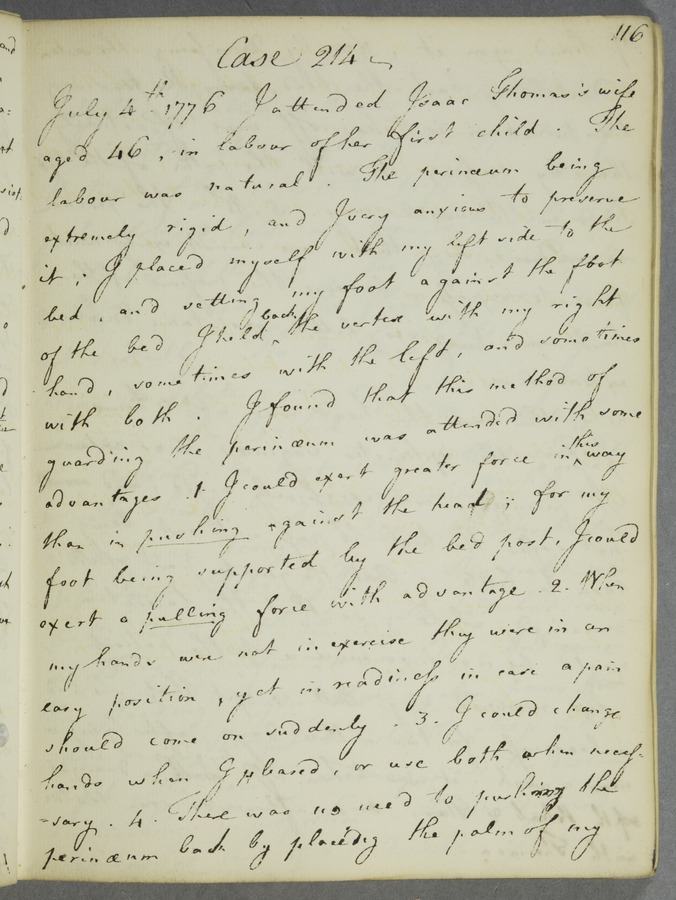 116
Case 214
July 4th 1776 I attended Isaac Thomas's wife
aged 46, in labour of her first child. The
labour was natural. The perinæum being
extremely rigid, and I very anxious to preserve
it; I placed myself with my left side to the
bed, and setting my foot against the foot
of the bed I held back the vertex with my right
hand, sometimes with the left, and sometimes
with both. I found that this method of
guarding the perinæum was attended with some
advantages. 1. I could exert greater force in this way
than in pushing against the head; for my
foot being supported by the bed post, I could
exert a pulling force with advantage. 2. When
my hands were not in exercise they were in an
easy position, yet in readiness in case a pain
should come on suddenly. 3. I could change
hands when I pleased, or use both when neces-
=sary. 4. There was no need to pushing the
perinæum back by placeing the palm of my